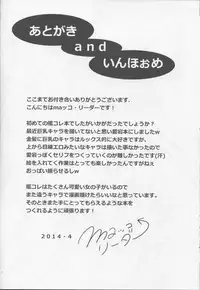 あとがき
and
いんほぉめ
ここまでお付き合いありがとうございます。
こんにちはmaッコ・リーダーです!
初めての艦コレ本でしたがいかがだったでしょうか?
最近巨乳キャラを描いてないと思い愛宕本にしましたw
金髪に巨乳のキャラはルックス的に大好きですが、
上から目線エロみたいなキャラは描いた事なかったので
愛宕っぽくセリフをつくっていくのが難しかったです(汗)
絵を入れてく作業はとっても楽しかったんですけどねぇ
おっぱい揺らせるしw
艦コレはたくさん可愛い女の子がいるので
また違うキャラで漫画描けたらいいなと思っています。
そのときまた手にとってもらえるような本を
つくれるように頑張ります!
2014・4
maッコ
リーダ